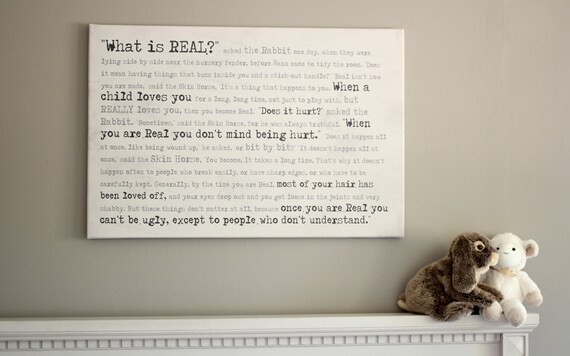 "What is REAL?" asked the Rabbit one day, when they were
lying side by side near the nursery fender, before Nana came to tidy the room. "Does
it mean having things that buzz inside you and a stick-out handle?" "Real isn't how
you are made," said the Skin Horse. "It's a thing that happens to you. When a
child loves you for a long, long time, not just to play with, but
REALLY loves you, then you become Real." "Does it hurt?" asked the
Rabbit. "Sometimes," said the Skin Horse, for he was always truthful. "When
you are Real you don't mind being hurt." "Does it happen all
at once, like being wound up," he asked, or bit by bit?" "It doesn't happen all at
once," said the Skin Horse. You become. It takes a long time. That's why it doesn't
happen often to people who break easily, or have sharp edges, or who have to be
carefully kept. Generally, by the time you are Real, most of your hair has
been loved off, and your eyes drop out and you get loose in the joints and very
shabby. But these things don't matter at all, because once you are Real you
can't be ugly, except to people who don't understand."